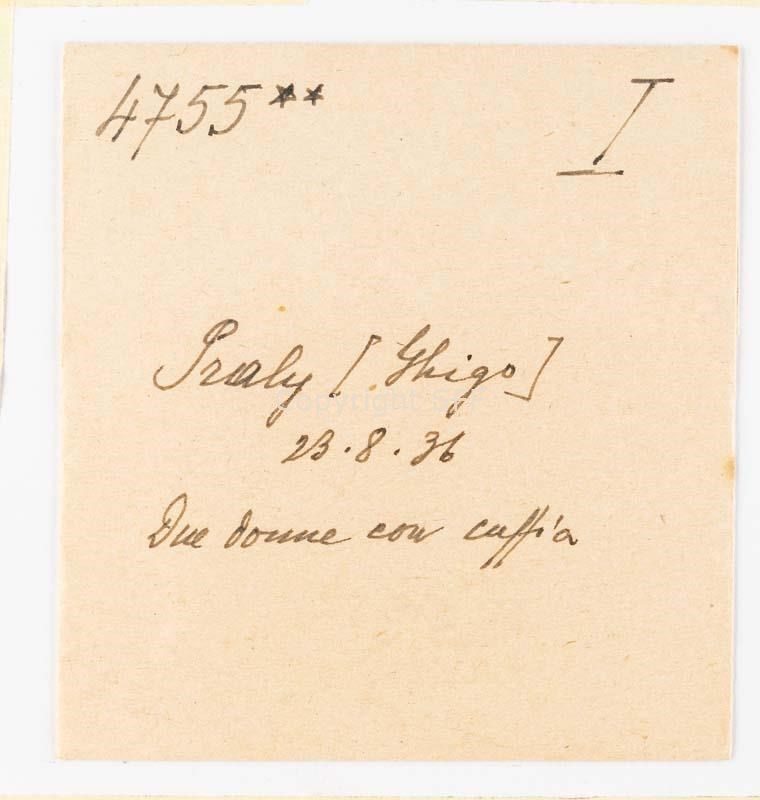 4755** I
Praly [Ghigo]
23.8.36
Due donne con cuffia